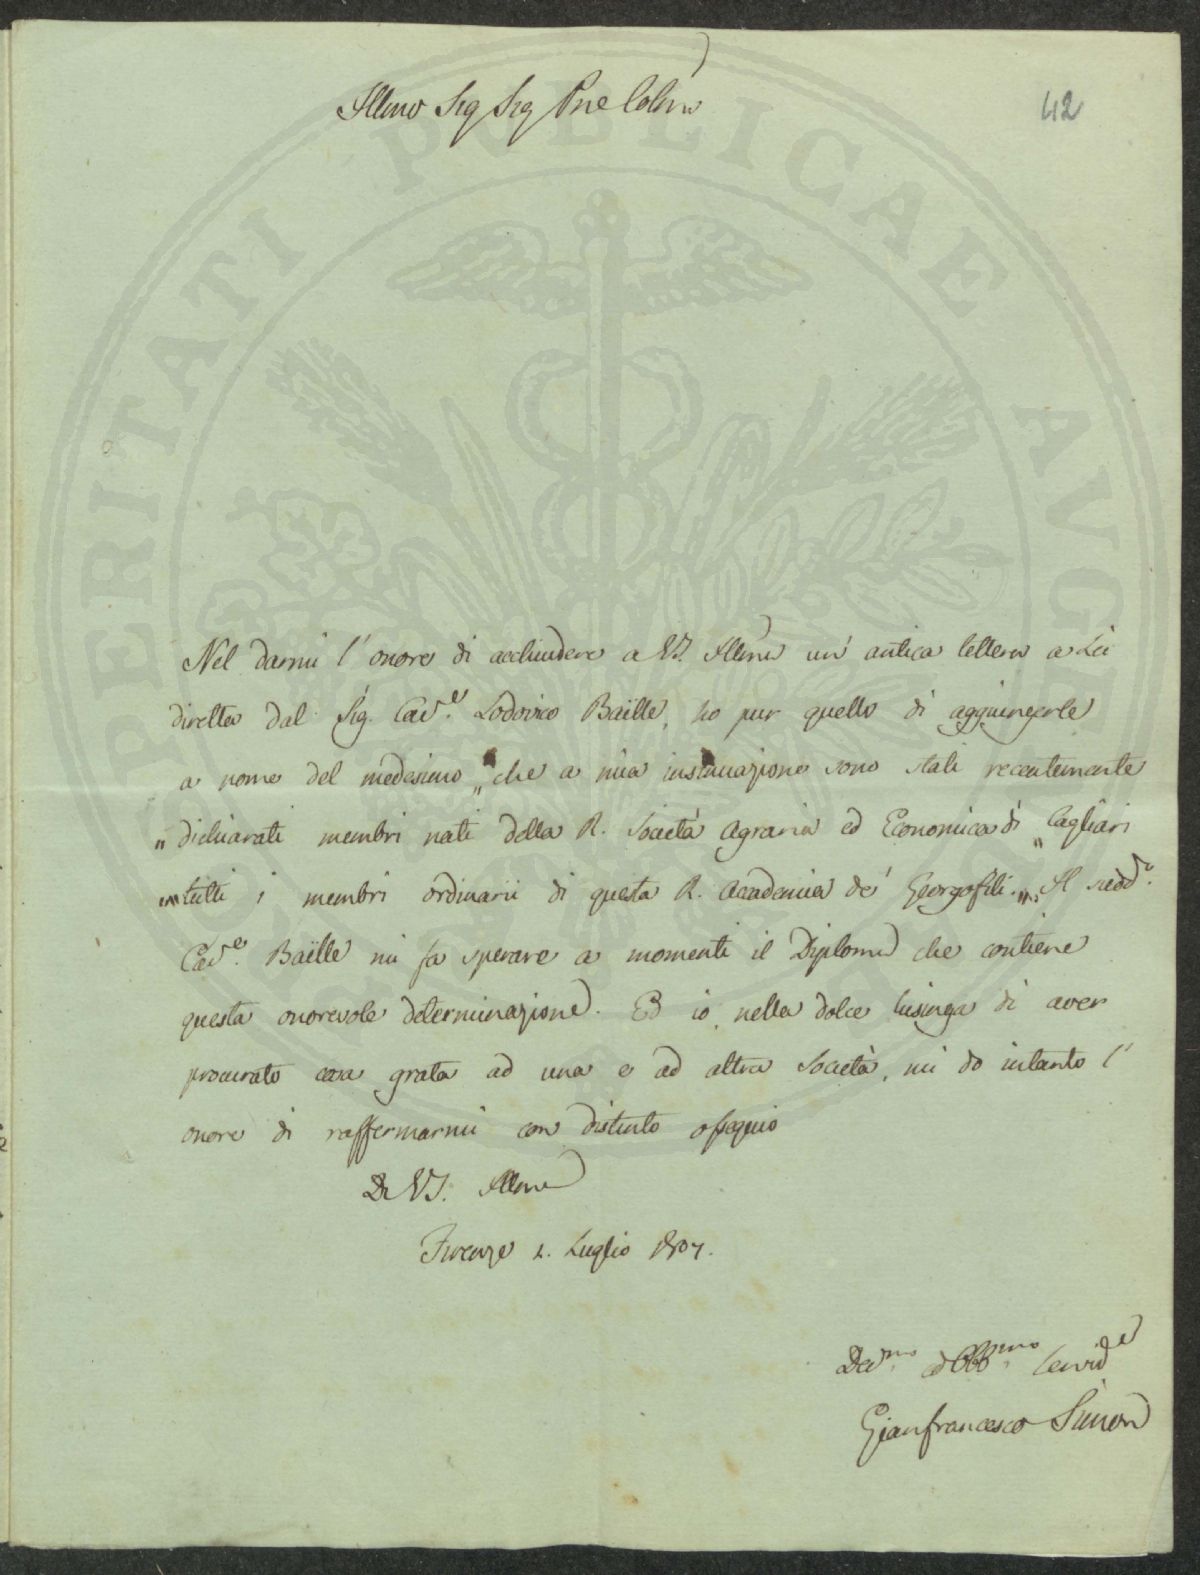 42
Illmo Sig Sig Pne Colmo
Nel darmi l' onore di acchiudere a VS. Illma un' antica lettera a Lei
diretta dal Sig. Cav.e Lodovico Baïlle, ho pur quello di aggiungerle
a nome del medesimo „ che a mia insinuazione sono stati recentemente
„ dichiarati membri nati della R. Società Agraria ed Economica di „ Cagliari
„ tutti i membri ordinarii di questa R. Accademia de' Georgofili. „ Il sudd.o
Cav.e Baïlle mi fa sperare a momenti il Diploma che contiene
questa onorevole determinazione. Ed io, nella dolce lusinga di aver
procurato cosa grata ad una e ad altra Società, mi do intanto l'
onore di raffermarmi con distinto ossequio
Di VS. Illma
Firenze 2. Luglio 1807.
Dev.mo ed Obb.mo Servid.e
Gianfrancesco Simon
PROSPERITATI PUBLICAE AUGE